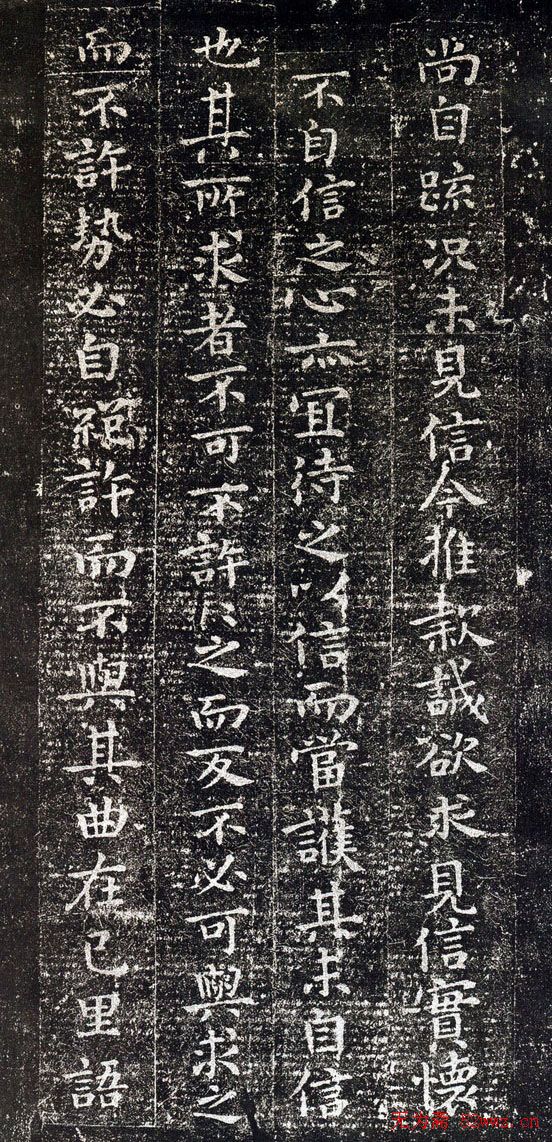 尚自疏况未見信今推款誠欲求見信實懷
不自信之心亦宜待之以信而當護其未自信
也其所求者不可不許許之而反不必可與求之
而不許势必自絕許而不與其曲在己里語